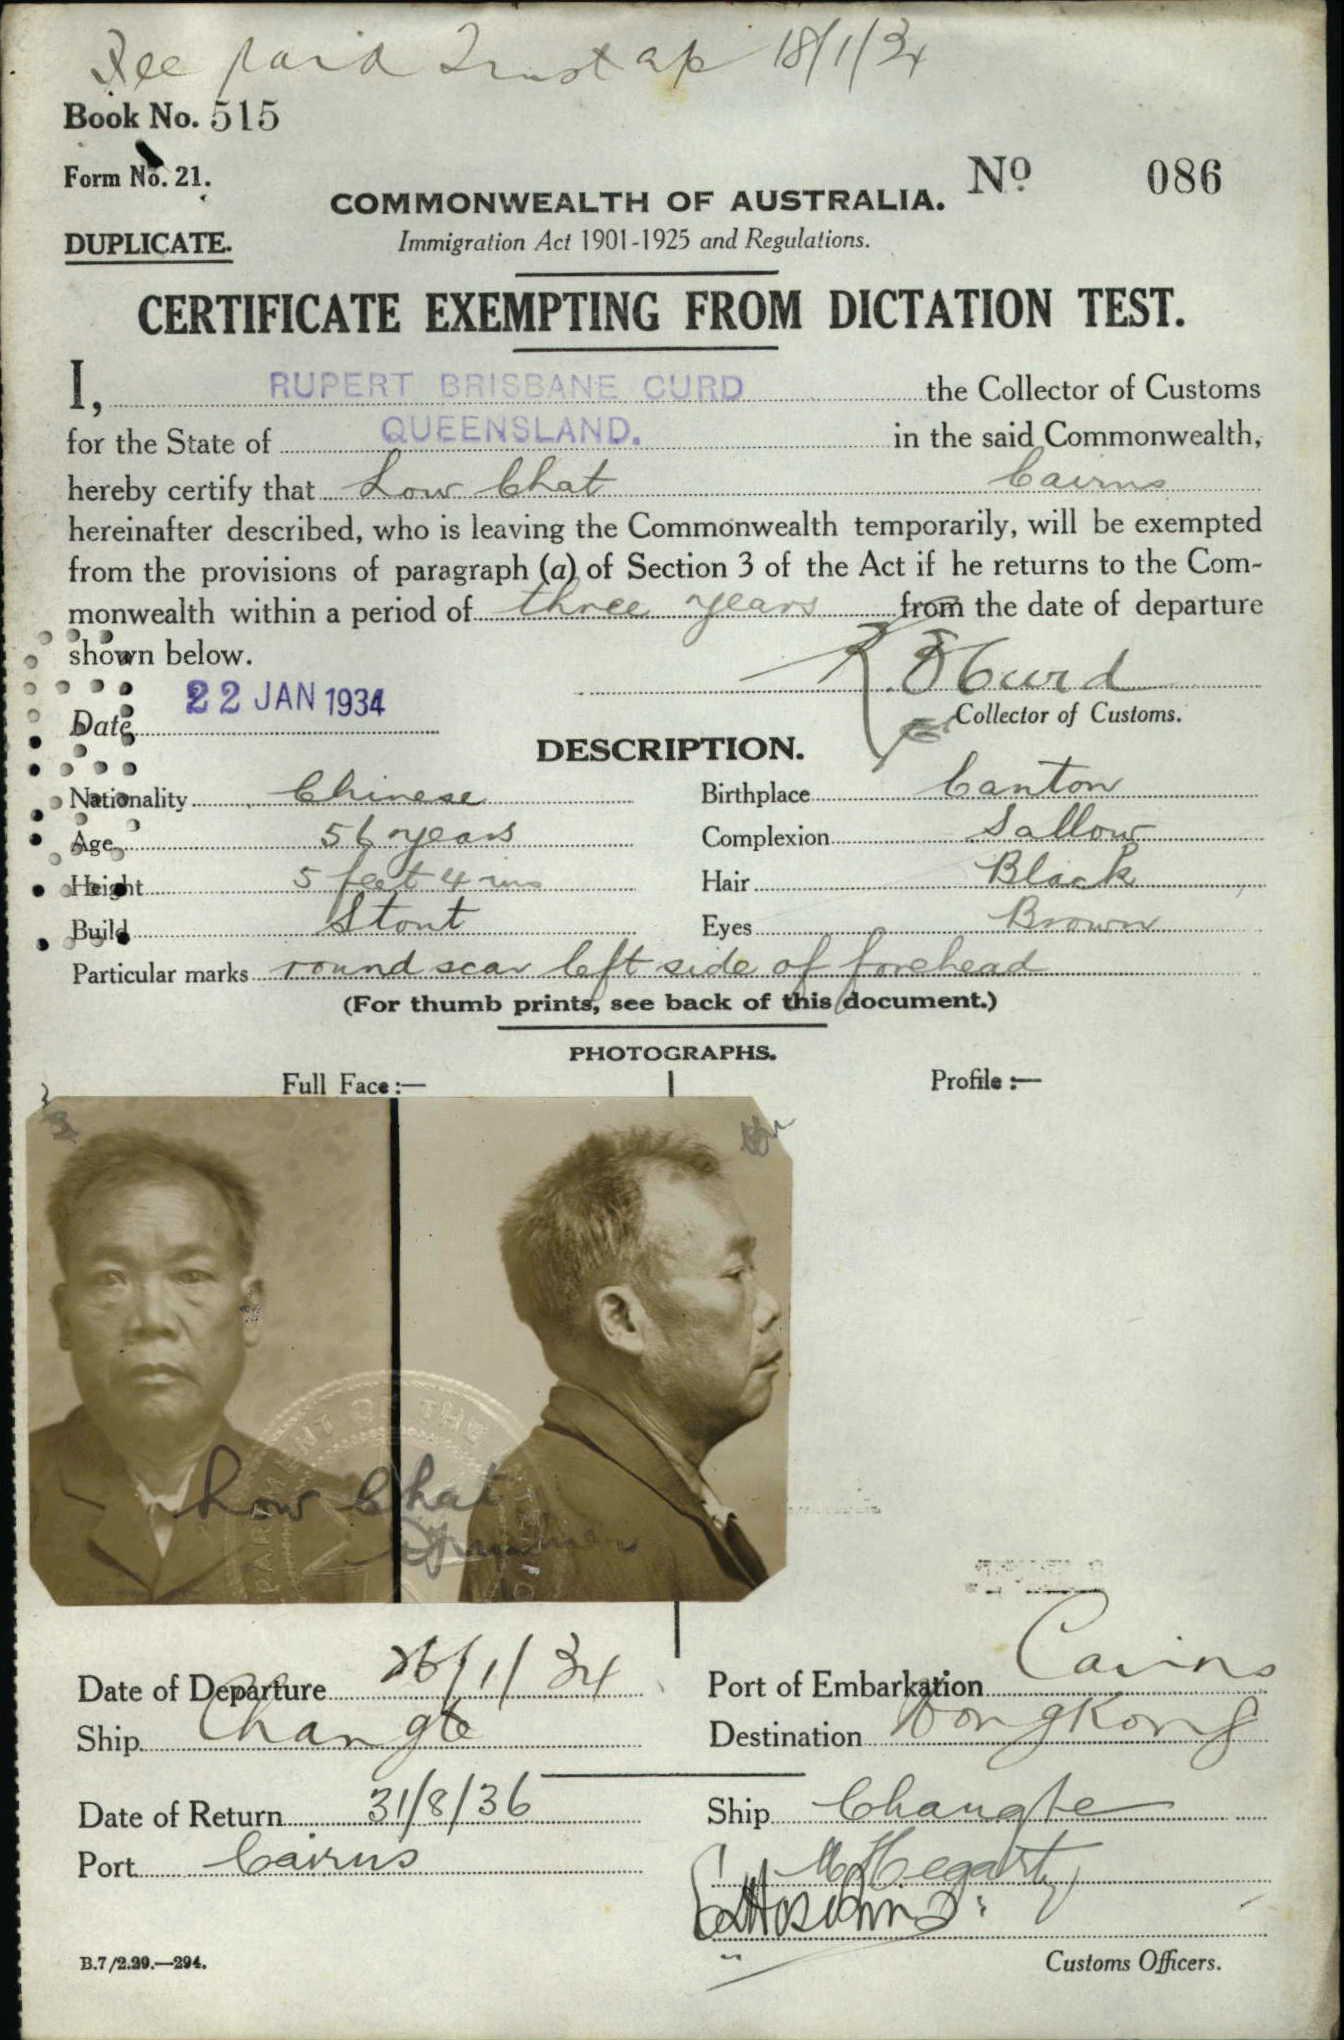 Fee paid Trust a/c 18/1/34
Book No. 515
Form No. 21.
No 086
COMMONWEALTH OF AUSTRALIA.
DUPLICATE.
Immigration Act 1901-1925 and Regulations.
CERTIFICATE EXEMPTING FROM DICTATION TEST.
I, RUPERT BRISBANE CURD the Collector of Customs
for the State of QUEENSLAND. in the said Commonwealth,
hereby certify that Low Chat Cairns
hereinafter described, who is leaving the Commonwealth temporarily, will be exempted
from the provisions of paragraph (a) of Section 3 of the Act if he returns to the Com-
monwealth within a period of three years from the date of departure
shown below.
R B Curd
Date 22 JAN 1934
Collector of Customs.
DESCRIPTION.
Nationality Chinese Birthplace Canton
Age 56 years Complexion Sallow
Height 5 feet 4 ins Hair Black
Build Stout Eyes Brown
Particular marks round scar left side of forehead
(For thumb prints, see back of this document.)
PHOTOGRAPHS.
Full Face :— Profile :—
Low Chat
Date of Departure 26/1/34 Port of Embarkation Cairns
Ship Changte Destination Hong Kong
Date of Return 31/8/36 Ship Changte
Port Cairns Hegarty
B.7/2.29.—294. Customs Officers.